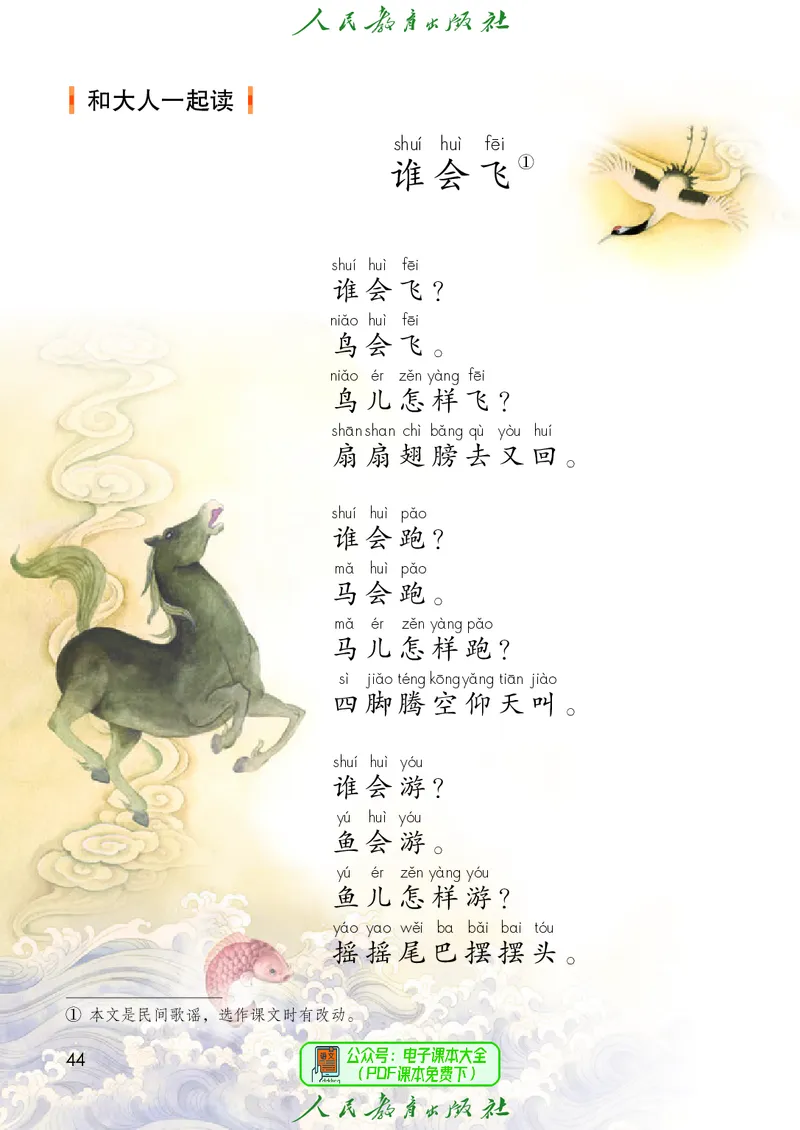 人民教育出版社
和大人一起读
shuí huì fēi
谁会飞①
shuí huì fēi
谁会飞？
niǎo huì fēi
鸟会飞。
niǎo ér zěn yàng fēi
鸟儿怎样飞？
shān shan chì bǎng qù yòu huí
扇扇翅膀去又回。
shuí huì pǎo
谁会跑？
mǎ huì pǎo
马会跑。
mǎ ér zěn yàng pǎo
马儿怎样跑？
sì jiǎo téng kōng yǎng tiān jiào
四脚腾空仰天叫。
shuí huì yóu
谁会游？
yú huì yóu
鱼会游。
yú ér zěn yàng yóu
鱼儿怎样游？
yáo yao wěi ba bǎi bai tóu
摇摇尾巴摆摆头。
① 本文是民间歌谣，选作课文时有改动。
44
语文
公众号：电子课本大全
（PDF课本免费下）
人民教育出版社